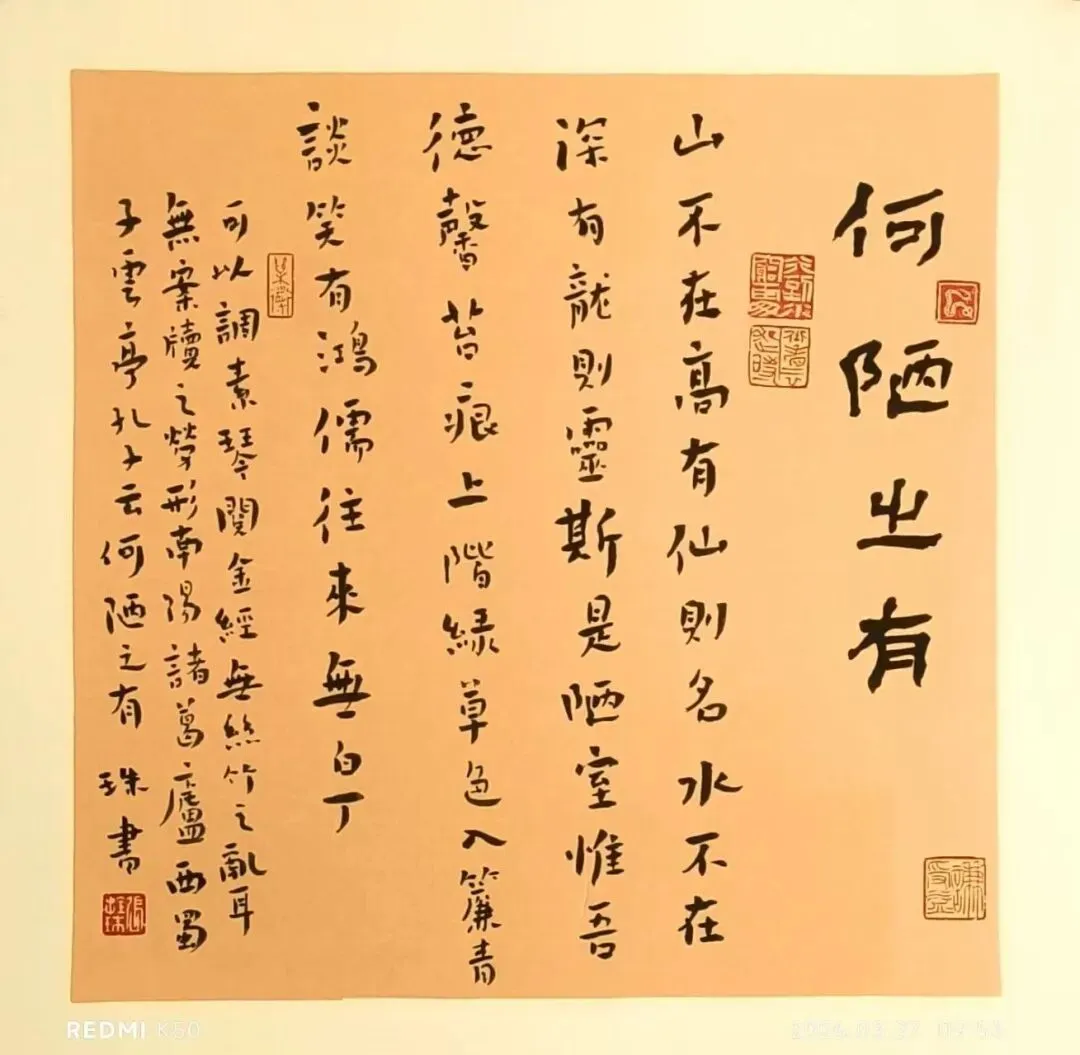 何陋之有
山不在高有仙則名水不在
深有龍則靈斯是陋室惟吾
德馨苔痕上階緑草色入簾青
談笑有鴻儒往來無白丁
可以調素琴閱金經無絲竹之亂耳
無案牘之勞形南陽諸葛廬西蜀
子雲亭孔子云何陋之有 珠書
REDMI K50